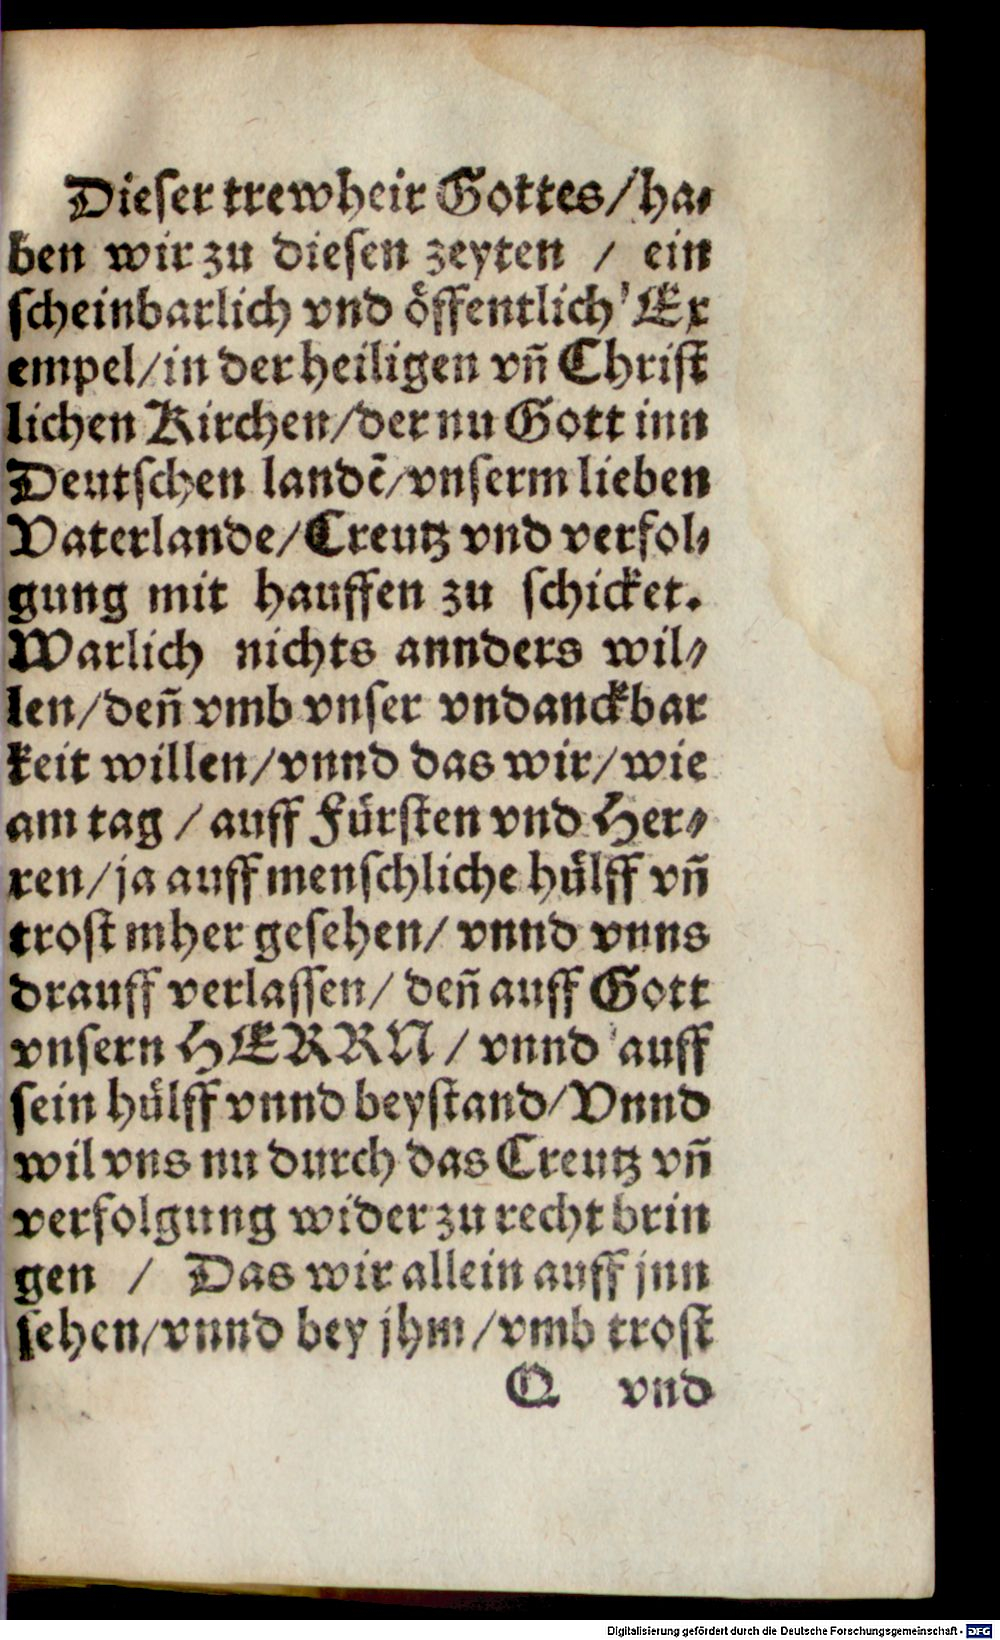 Dieser trewheir Gottes / ha⸗
ben wir zu diesen zeyten / ein
scheinbarlich vnd öffentlich Ex
empel / in der heiligen vñ Christ
lichen Kirchen / der nu Gott inn
Deutschen landẽ / vnserm lieben
Vaterlande / Creutz vnd verfol⸗
gung mit hauffen zu schicket.
Warlich nichts annders wil⸗
len / deñ vmb vnser vndanckbar
keit willen / vnnd das wir / wie
am tag / auff Fürsten vnd Her⸗
ren / ja auff menschliche hülff vñ
trost mher gesehen / vnnd vnns
drauff verlassen / deñ auff Gott
vnsern HERRN / vnnd auff
sein hülff vnnd beystand / Vnnd
wil vns nu durch das Creutz vñ
verfolgung wider zu recht brin
gen / Das wir allein auff jnn
sehen / vnnd bey jhm / vmb trost
Q vnd
Digitalisierung gefördert durch die Deutsche Forschungsgemeinschaft - DFG